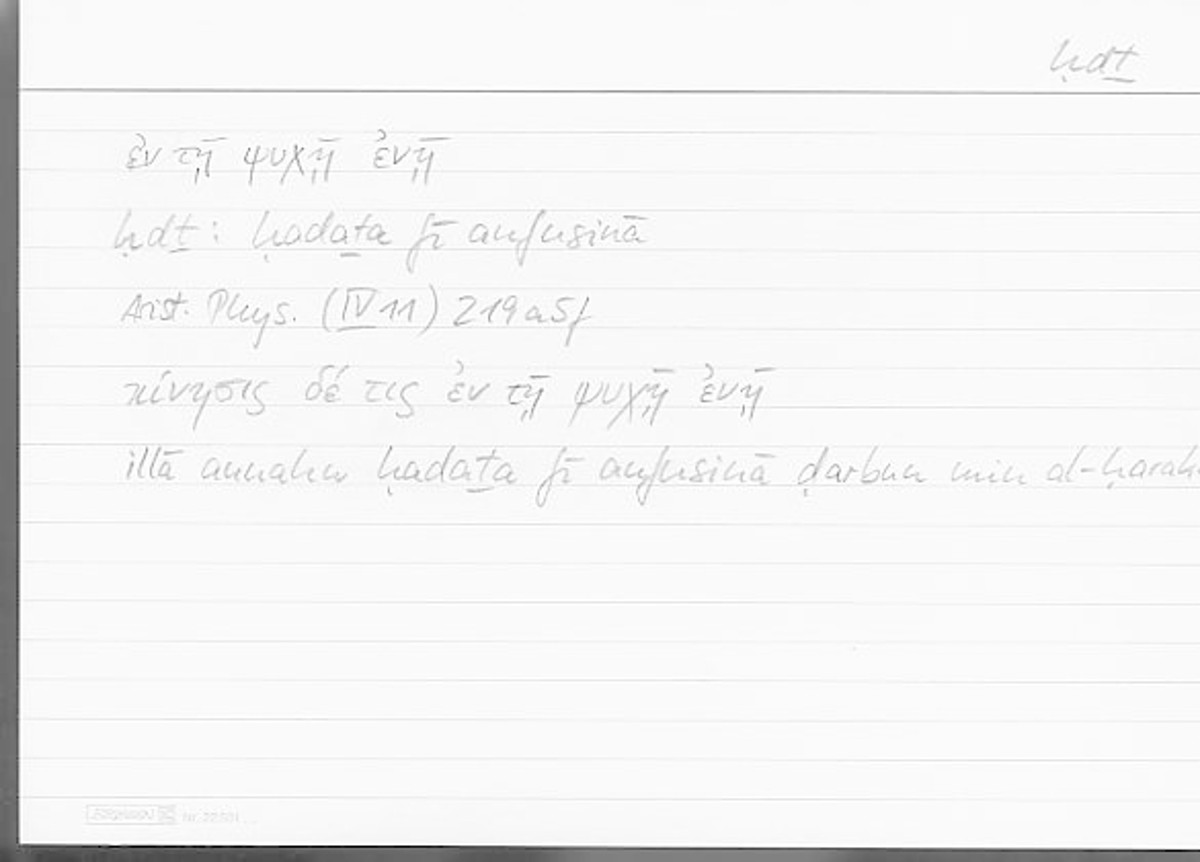 ḥdṯ
ἐν τῇ ψυχῇ ἐνῇ
ḥdṯ: ḥadaṯa fī anfusinā
Arist. Phys. (IV 11) 219a5f
κίνησις δέ τις ἐν τῇ ψυχῇ ἐνῇ
illā annahu ḥadaṯa fī anfusinā ḍarbun min al-ḥarak